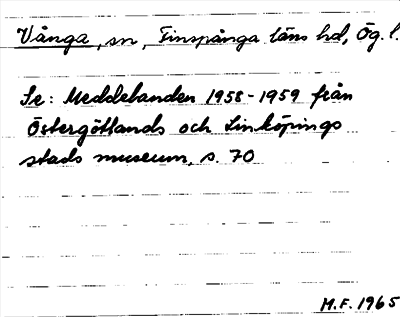 Vånga, sn, Finspånga läns hd, Ög. l.
Se: Meddelanden 1958-1959 från
Östergötlands och Linköpings
stads museum, s. 70
M.F. 1965